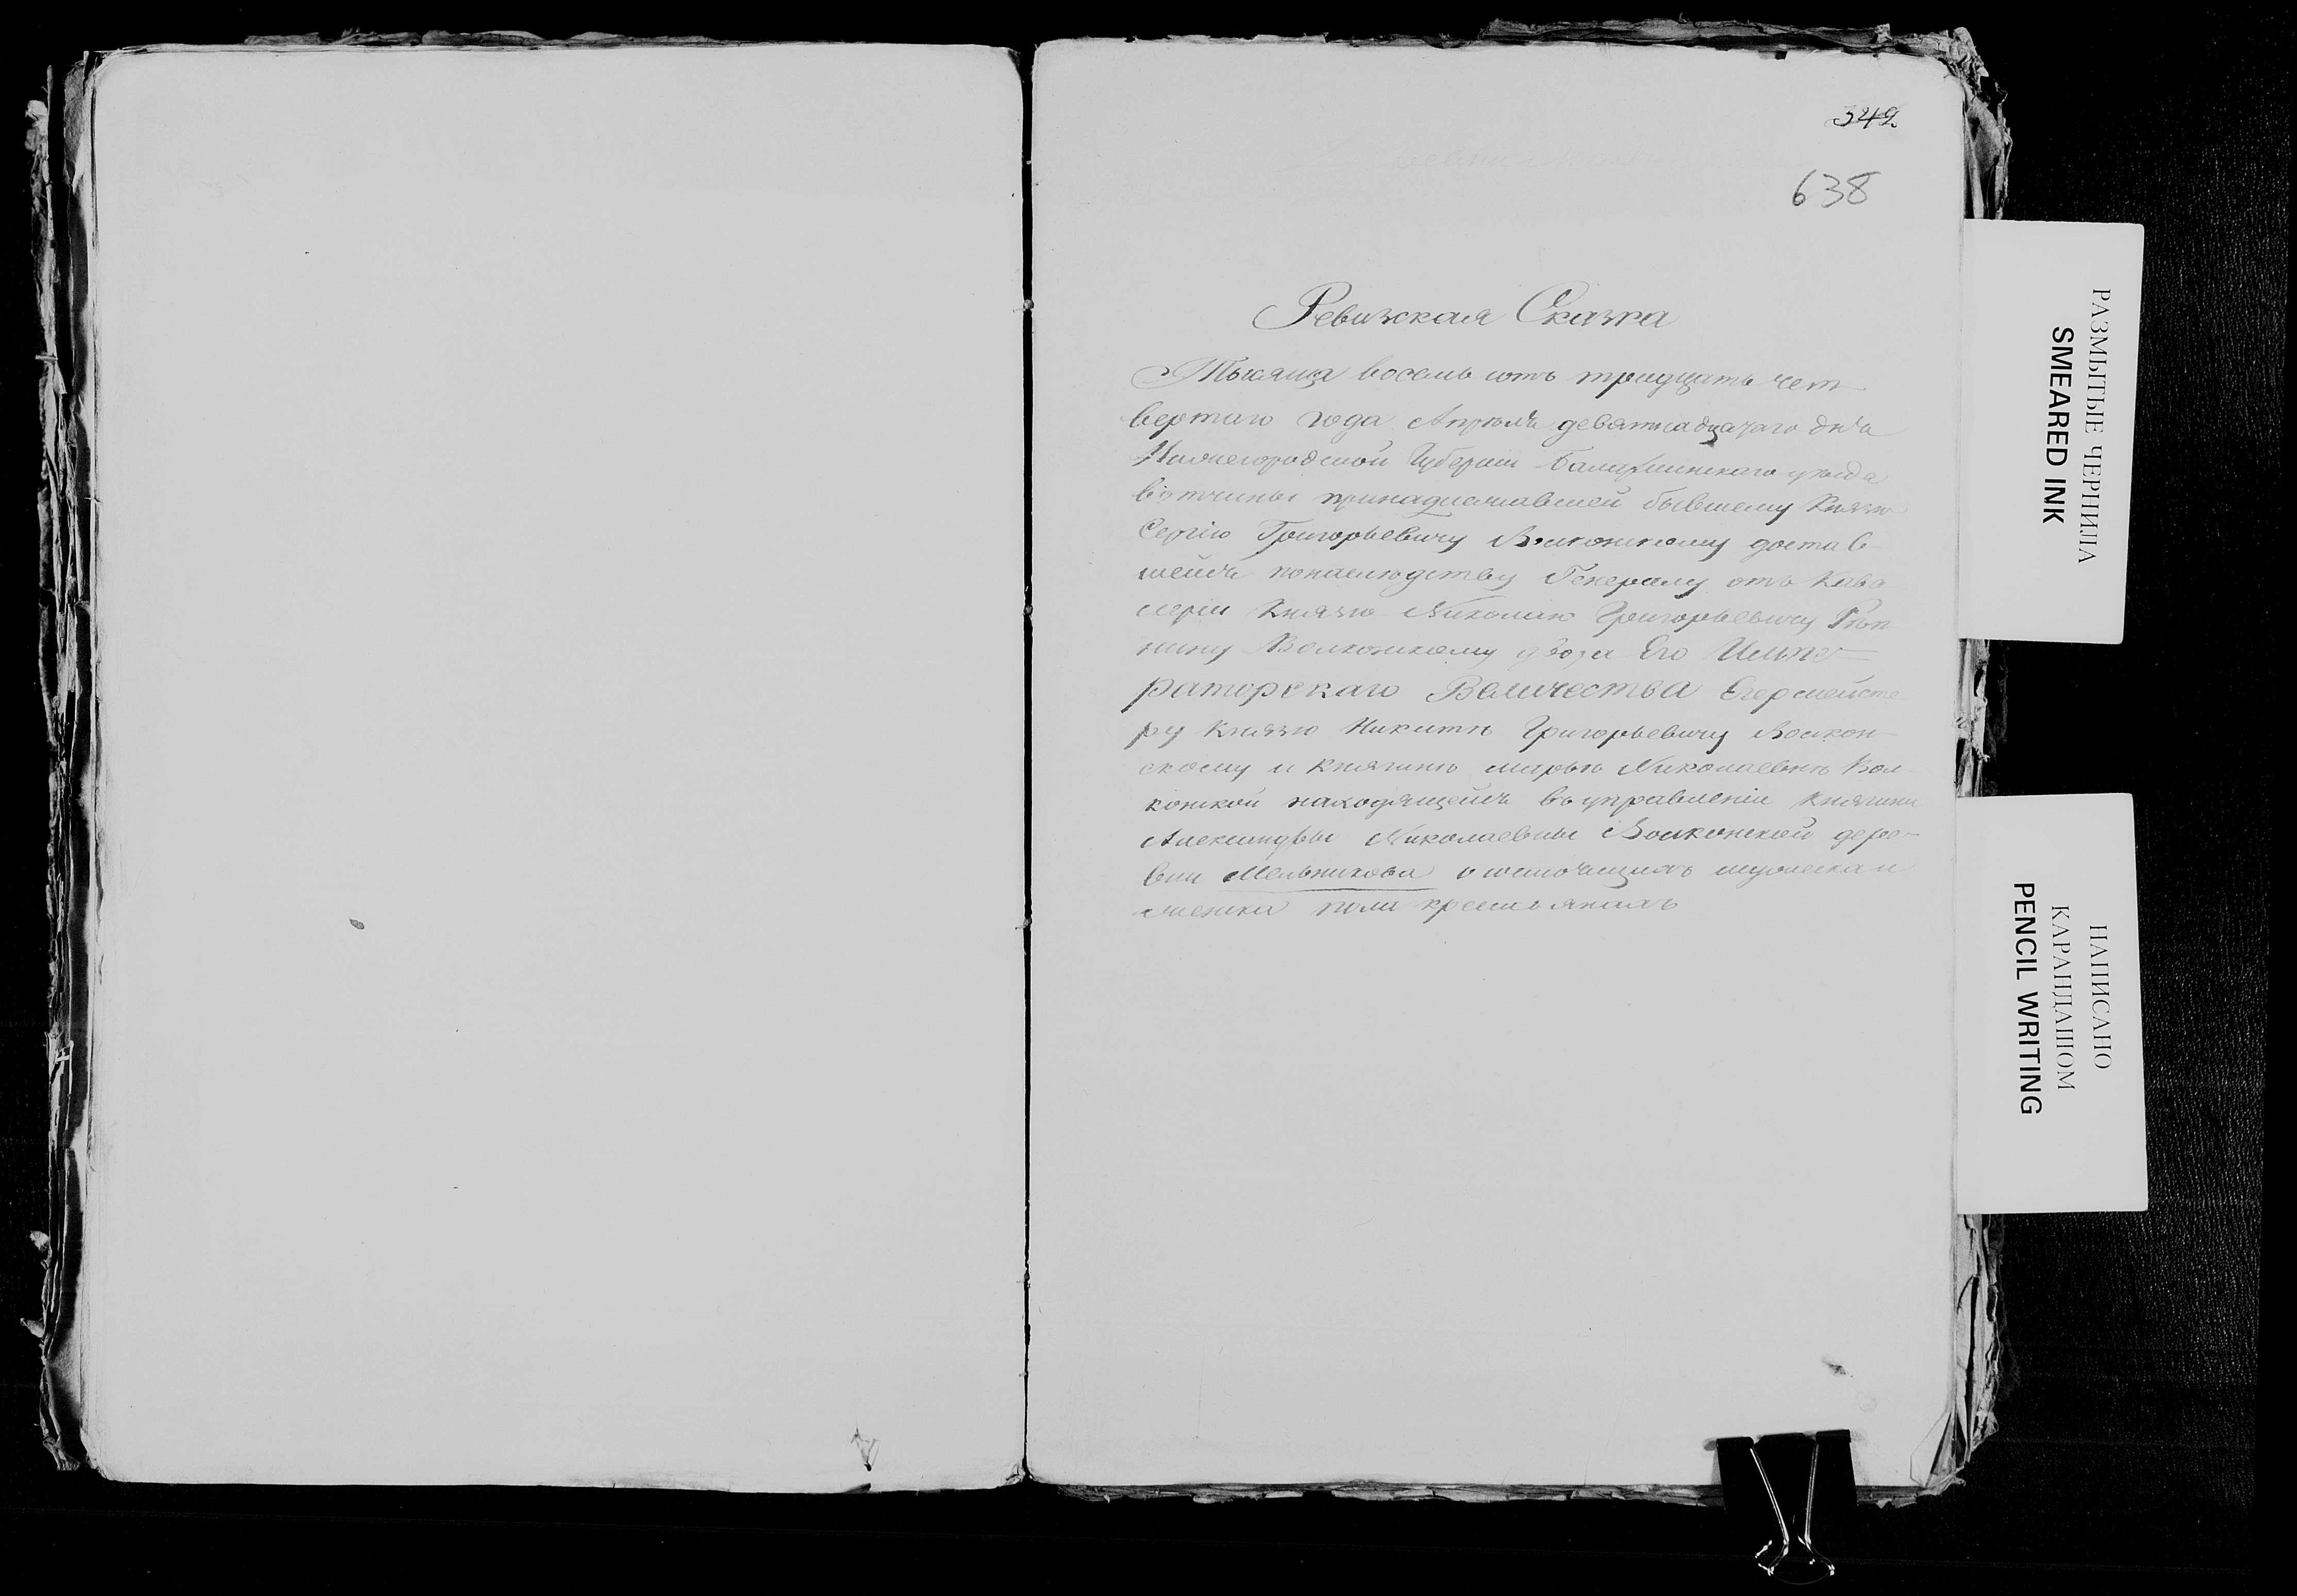 349.
638
Ревизская Сказка
Тысяща восемь сотъ тридцать чет
вертаго года Апреля девятнадцатаго дня
Нижегородской Губерніи Балахнинскаго уезда
вотчины принадлежавшей бывшему Князю
Сергію Григорьевичу Волконскому достав
шейся понаследству Генералу отъ Кава
леріи Князю Николаю Григорьевичу Реп
нину Волконскому двора Его Импе
раторскаго Величества Егермейсте
ру Князю Никите Григорьевичу Волкон
скому и Княгине Марье Николаевне Вол
конской находящейся въ управленіи Княгини
Александры Николаевны Волконской дерев
вни Мельникова о состоящихъ мужеска и
женска пола крестьянахъ
РАЗМЫТЫЕ ЧЕРНИЛА
SMEARED INK
НАПИСАНО
КАРАНДАШОМ
PENCIL WRITING